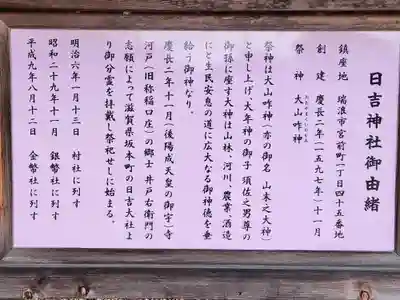 日吉神社御由緒
鎮座地　瑞浪市宮前町一丁目四十五番地
創建　慶長二年（一五九七年）十一月
祭神　大山咋神
祭神は大山咋神（亦の御名　山末之大神）
と申し上げ大年神の御子　須佐之男尊の
御孫に座す大神は山林、河川、農業、酒造
にと生民安息の道に広大なる御神徳を垂
給う御神なり。
慶長二年十一月（後陽成天皇の御宇）寺
河戸（旧称稲口庄）の郷士　井戸右衛門の
志願によって滋賀県坂本町の日吉大社よ
り御分霊を拝戴し祭祀せしに始まる。
明治六年一月十三日　村社に列す
昭和二十九年十一月　銀幣社に列す
平成九年八月十二日　金幣社に列す